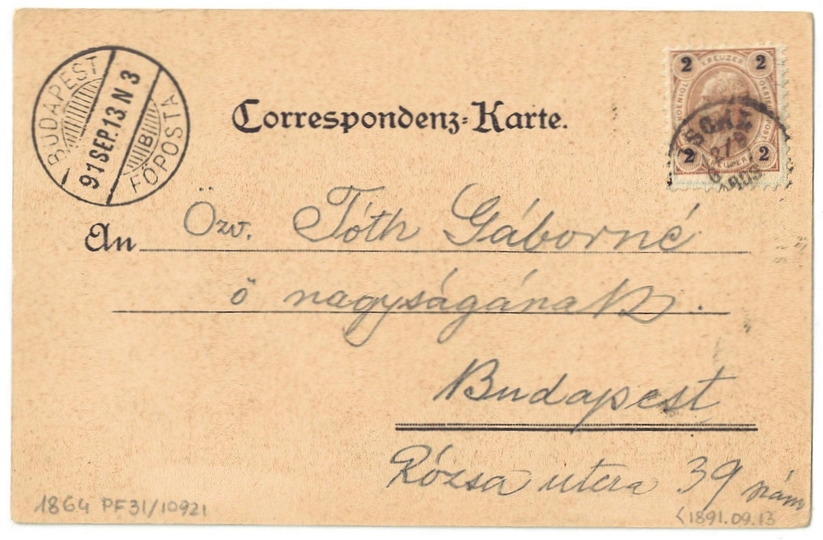 BUDAPEST
91 SEP.13 N 3
B
FŐPOSTA
2 KREUZER 2
2 2
Correspondenz-Karte.
An Özv. Tóth Gáborné
ő nagyságának.
Budapest
Rózsa utcza 39 szám
1864 PF31/10921
<1891.09.13